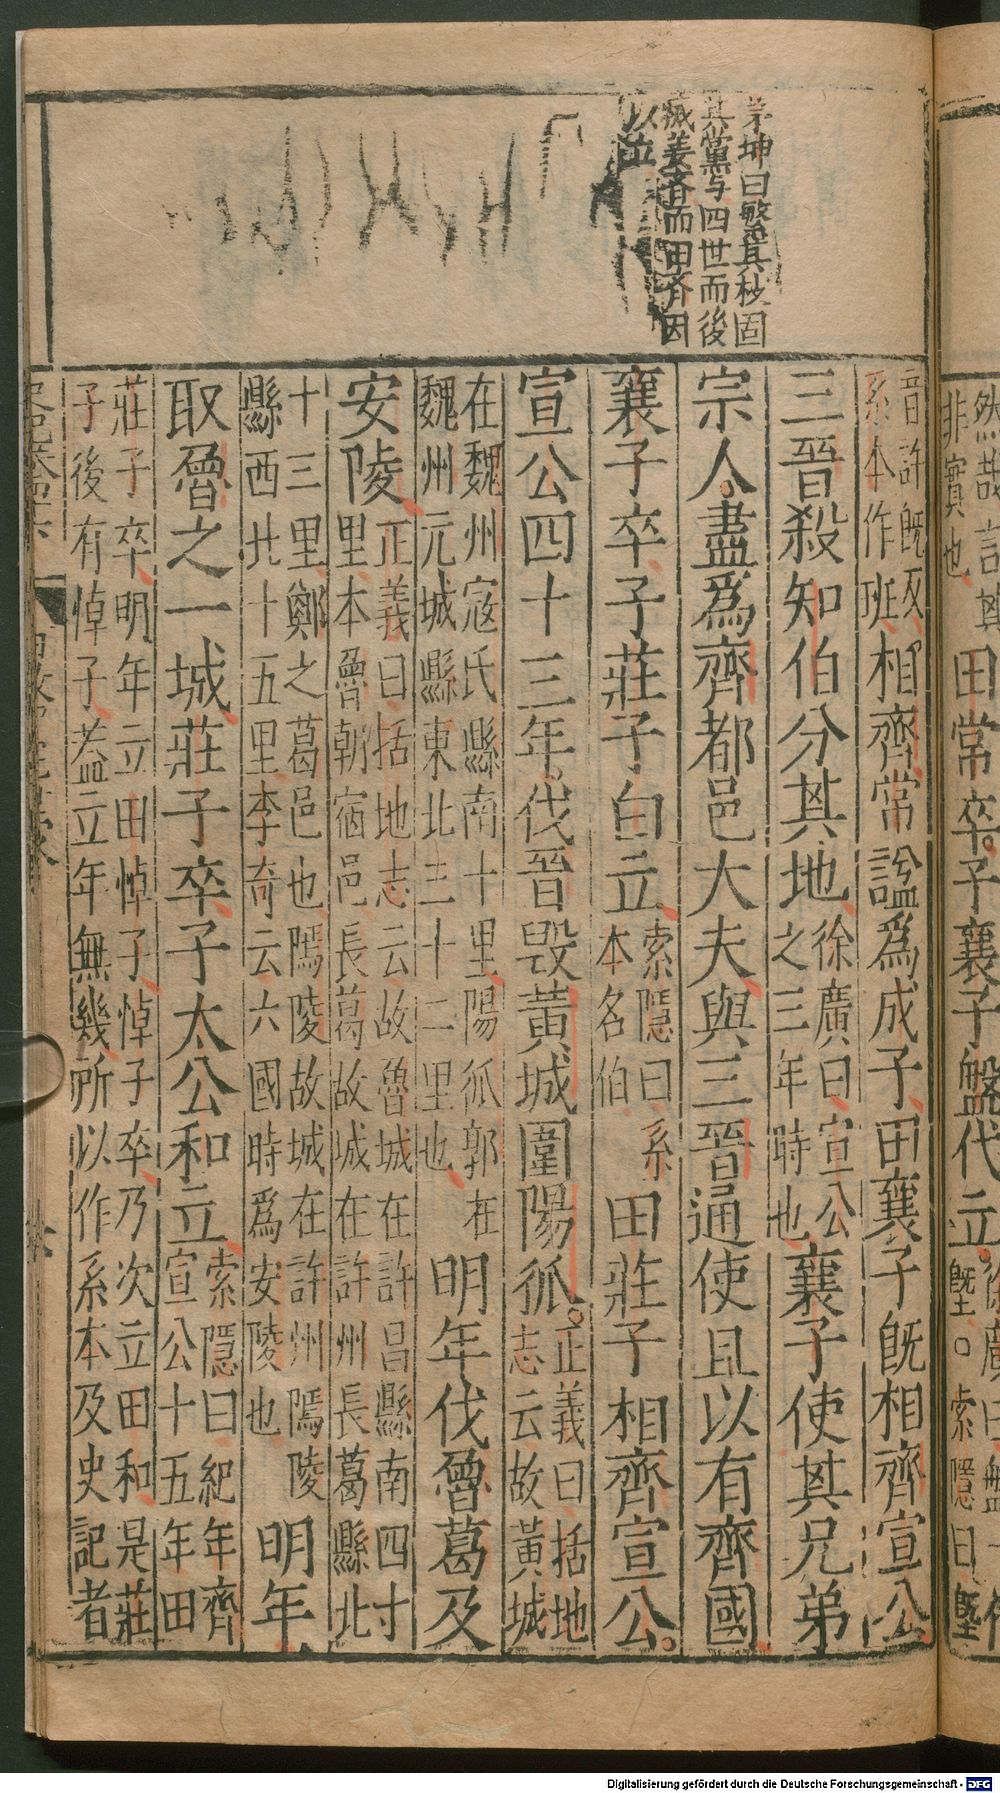 然哉言其
非實也
田常卒子襄子盤代立
索隱曰
茅坤曰繁其枝固
其黨与四世而後
瘋姜齊而田齊因
以並
音許既反
系本作班
相齊常謚爲成子田襄子旣相齊宣公
三晉殺知伯分其地
徐廣曰宣公
之三年時也
襄子使其兄弟
宗人盡爲齊都邑大夫與三晉通使且以有齊國
襄子卒子莊子白立
索隱曰系
本名伯
田莊子相齊宣公
宣公四十三年伐晉毀黃城圍陽狐
正義曰括地
志云故黃城
在魏州冦氏縣南十里陽狐郭在
魏州元城縣東北三十二里也
明年伐魯葛及
安陵
正義曰括地志云故魯城在許昌縣南四十
里本魯朝宿邑長葛故城在許州長葛縣北
十三里鄭之葛邑也隝陵故城在許州隝陵
縣西北十五里李奇云六國時爲安陵也
明年
取魯之一城莊子卒子太公和立
索隱曰紀年齊
宣公十五年田
莊子卒明年立田悼子悼子卒乃次立田和是莊
子後有悼子葢立年無幾所以作系本及史記者
Digitalisierung gefördert durch die Deutsche Forschungsgemeinschaft - DFG